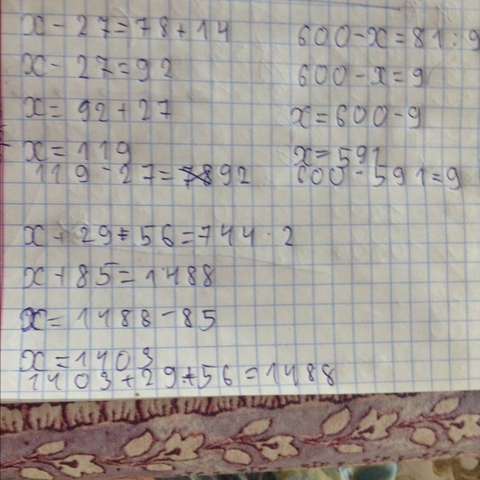 x - 27 = 78 + 14
x - 27 = 92
x = 92 + 27
x = 119
119 - 27 = 92
600 - x = 81 : 9
600 - x = 9
x = 600 - 9
x = 591
600 - 591 = 9
x + 29 + 56 = 744 · 2
x + 85 = 1488
x = 1488 - 85
x = 1403
1403 + 29 + 56 = 1488